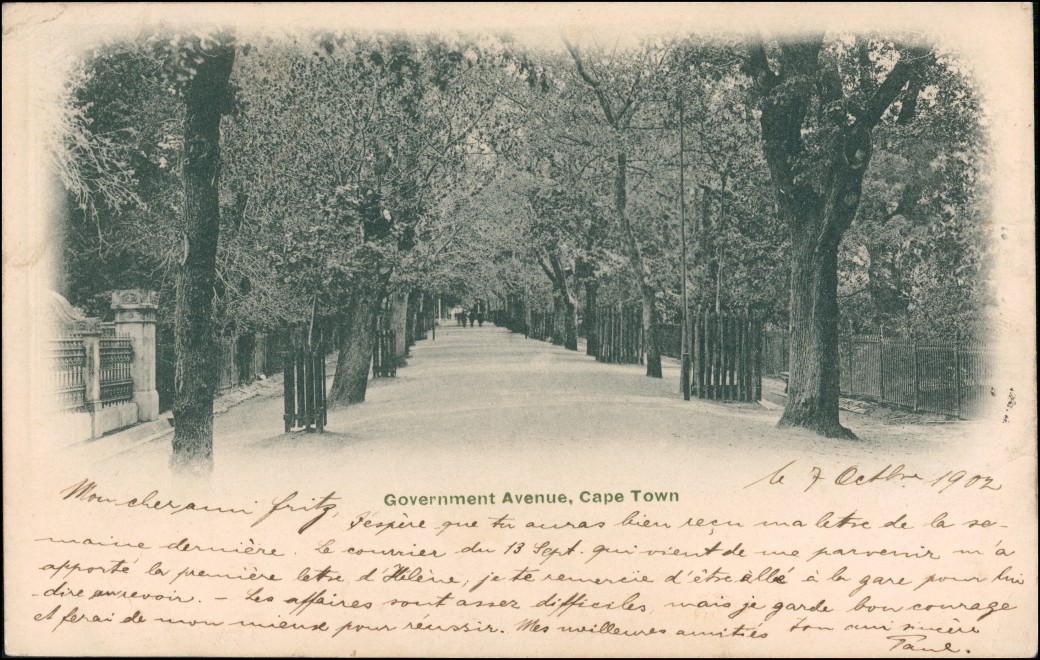 Government Avenue, Cape Town
le 7 Octbre 1902
Mon cher ami Fritz,
J'espère que tu auras bien reçu ma lettre de la se-
maine dernière. Le courrier du 13 Sept. qui vient de me parvenir m'a
apporté la première lettre d'Hélène, je te remercie d'être allé à la gare pour lui
dire au revoir. – Les affaires sont assez difficiles, mais je garde bon courage
et ferai de mon mieux pour réussir. Mes meilleures amitiés ton ami sincère
Paul.